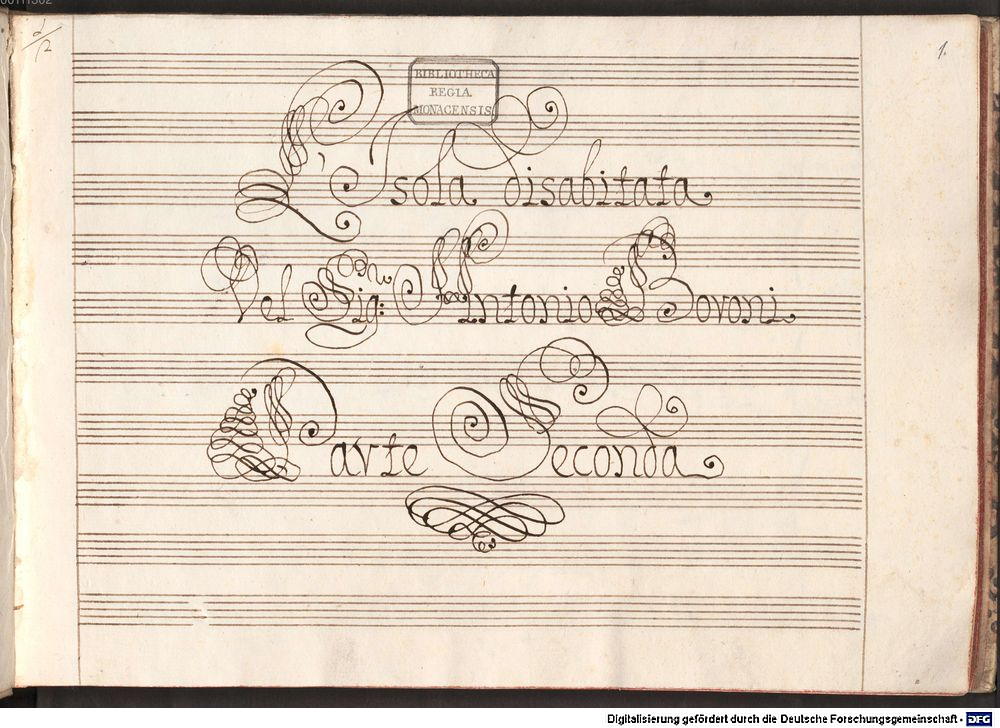 1.
BIBLIOTHECA
REGIA
MONACENSIS
L'Isola disabitata
Del Sig: Antonio Boroni
Parte Seconda
Digitalisierung gefördert durch die Deutsche Forschungsgemeinschaft - DFG